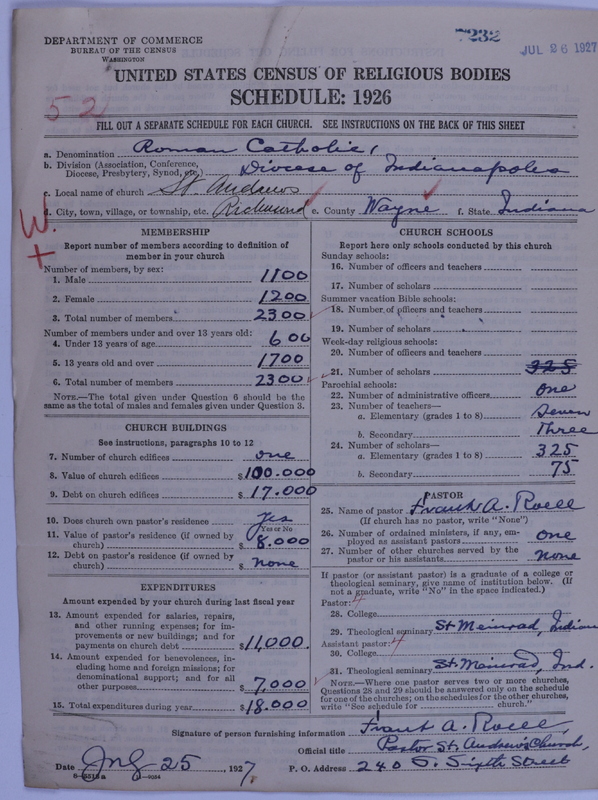 7232
JUL 26 1927
DEPARTMENT OF COMMERCE
BUREAU OF THE CENSUS
WASHINGTON
UNITED STATES CENSUS OF RELIGIOUS BODIES
SCHEDULE: 1926
52
FILL OUT A SEPARATE SCHEDULE FOR EACH CHURCH. SEE INSTRUCTIONS ON THE BACK OF THIS SHEET
a. Denomination Roman Catholic,
b. Division (Association, Conference, Diocese, Presbytery, Synod, etc.) Diocese of Indianapolis
c. Local name of church St. Andrews
d. City, town, village, or township, etc. Richmond e. County Wayne f. State Indiana
W.
+
MEMBERSHIP
Report number of members according to definition of
member in your church
Number of members, by sex:
1. Male 1100
2. Female 1200
3. Total number of members 2300
Number of members under and over 13 years old:
4. Under 13 years of age 600
5. 13 years old and over 1700
6. Total number of members 2300
NOTE.—The total given under Question 6 should be the
same as the total of males and females given under Question 3.
CHURCH BUILDINGS
See instructions, paragraphs 10 to 12
7. Number of church edifices one
8. Value of church edifices $100.000
9. Debt on church edifices $17.000
10. Does church own pastor's residence Yes
Yes or No
11. Value of pastor's residence (if owned by
church) $8.000
12. Debt on pastor's residence (if owned by
church) $none
EXPENDITURES
Amount expended by your church during last fiscal year
13. Amount expended for salaries, repairs,
and other running expenses; for im-
provements or new buildings; and for
payments on church debt $11,000.
14. Amount expended for benevolences, in-
cluding home and foreign missions; for
denominational support; and for all
other purposes $7,000
15. Total expenditures during year $18.000
CHURCH SCHOOLS
Report here only schools conducted by this church
Sunday schools:
16. Number of officers and teachers
17. Number of scholars
Summer vacation Bible schools:
18. Number of officers and teachers
19. Number of scholars
Week-day religious schools:
20. Number of officers and teachers
21. Number of scholars 325
Parochial schools:
22. Number of administrative officers one
23. Number of teachers—
a. Elementary (grades 1 to 8) Seven
b. Secondary Three
24. Number of scholars—
a. Elementary (grades 1 to 8) 325
b. Secondary 75
PASTOR
25. Name of pastor Frank A. Roell
(If church has no pastor, write "None")
26. Number of ordained ministers, if any, em-
ployed as assistant pastors one
27. Number of other churches served by the
pastor or his assistants none
If pastor (or assistant pastor) is a graduate of a college or
theological seminary, give name of institution below. (If
not a graduate, write "No" in the space indicated.)
Pastor: 4
28. College
29. Theological seminary St Meinrad, Indian
Assistant pastor: 4
30. College
31. Theological seminary St Meinrad, Ind.
NOTE.—Where one pastor serves two or more churches,
Questions 28 and 29 should be answered only on the schedule
for one of the churches; on the schedules for the other churches,
write "See schedule for church."
Signature of person furnishing information Frank A. Roell,
Official title Pastor St. Andrew's Church,
Date July 25, 1927. P. O. Address 240 S. Sixth Street
8-5518a 11-9084